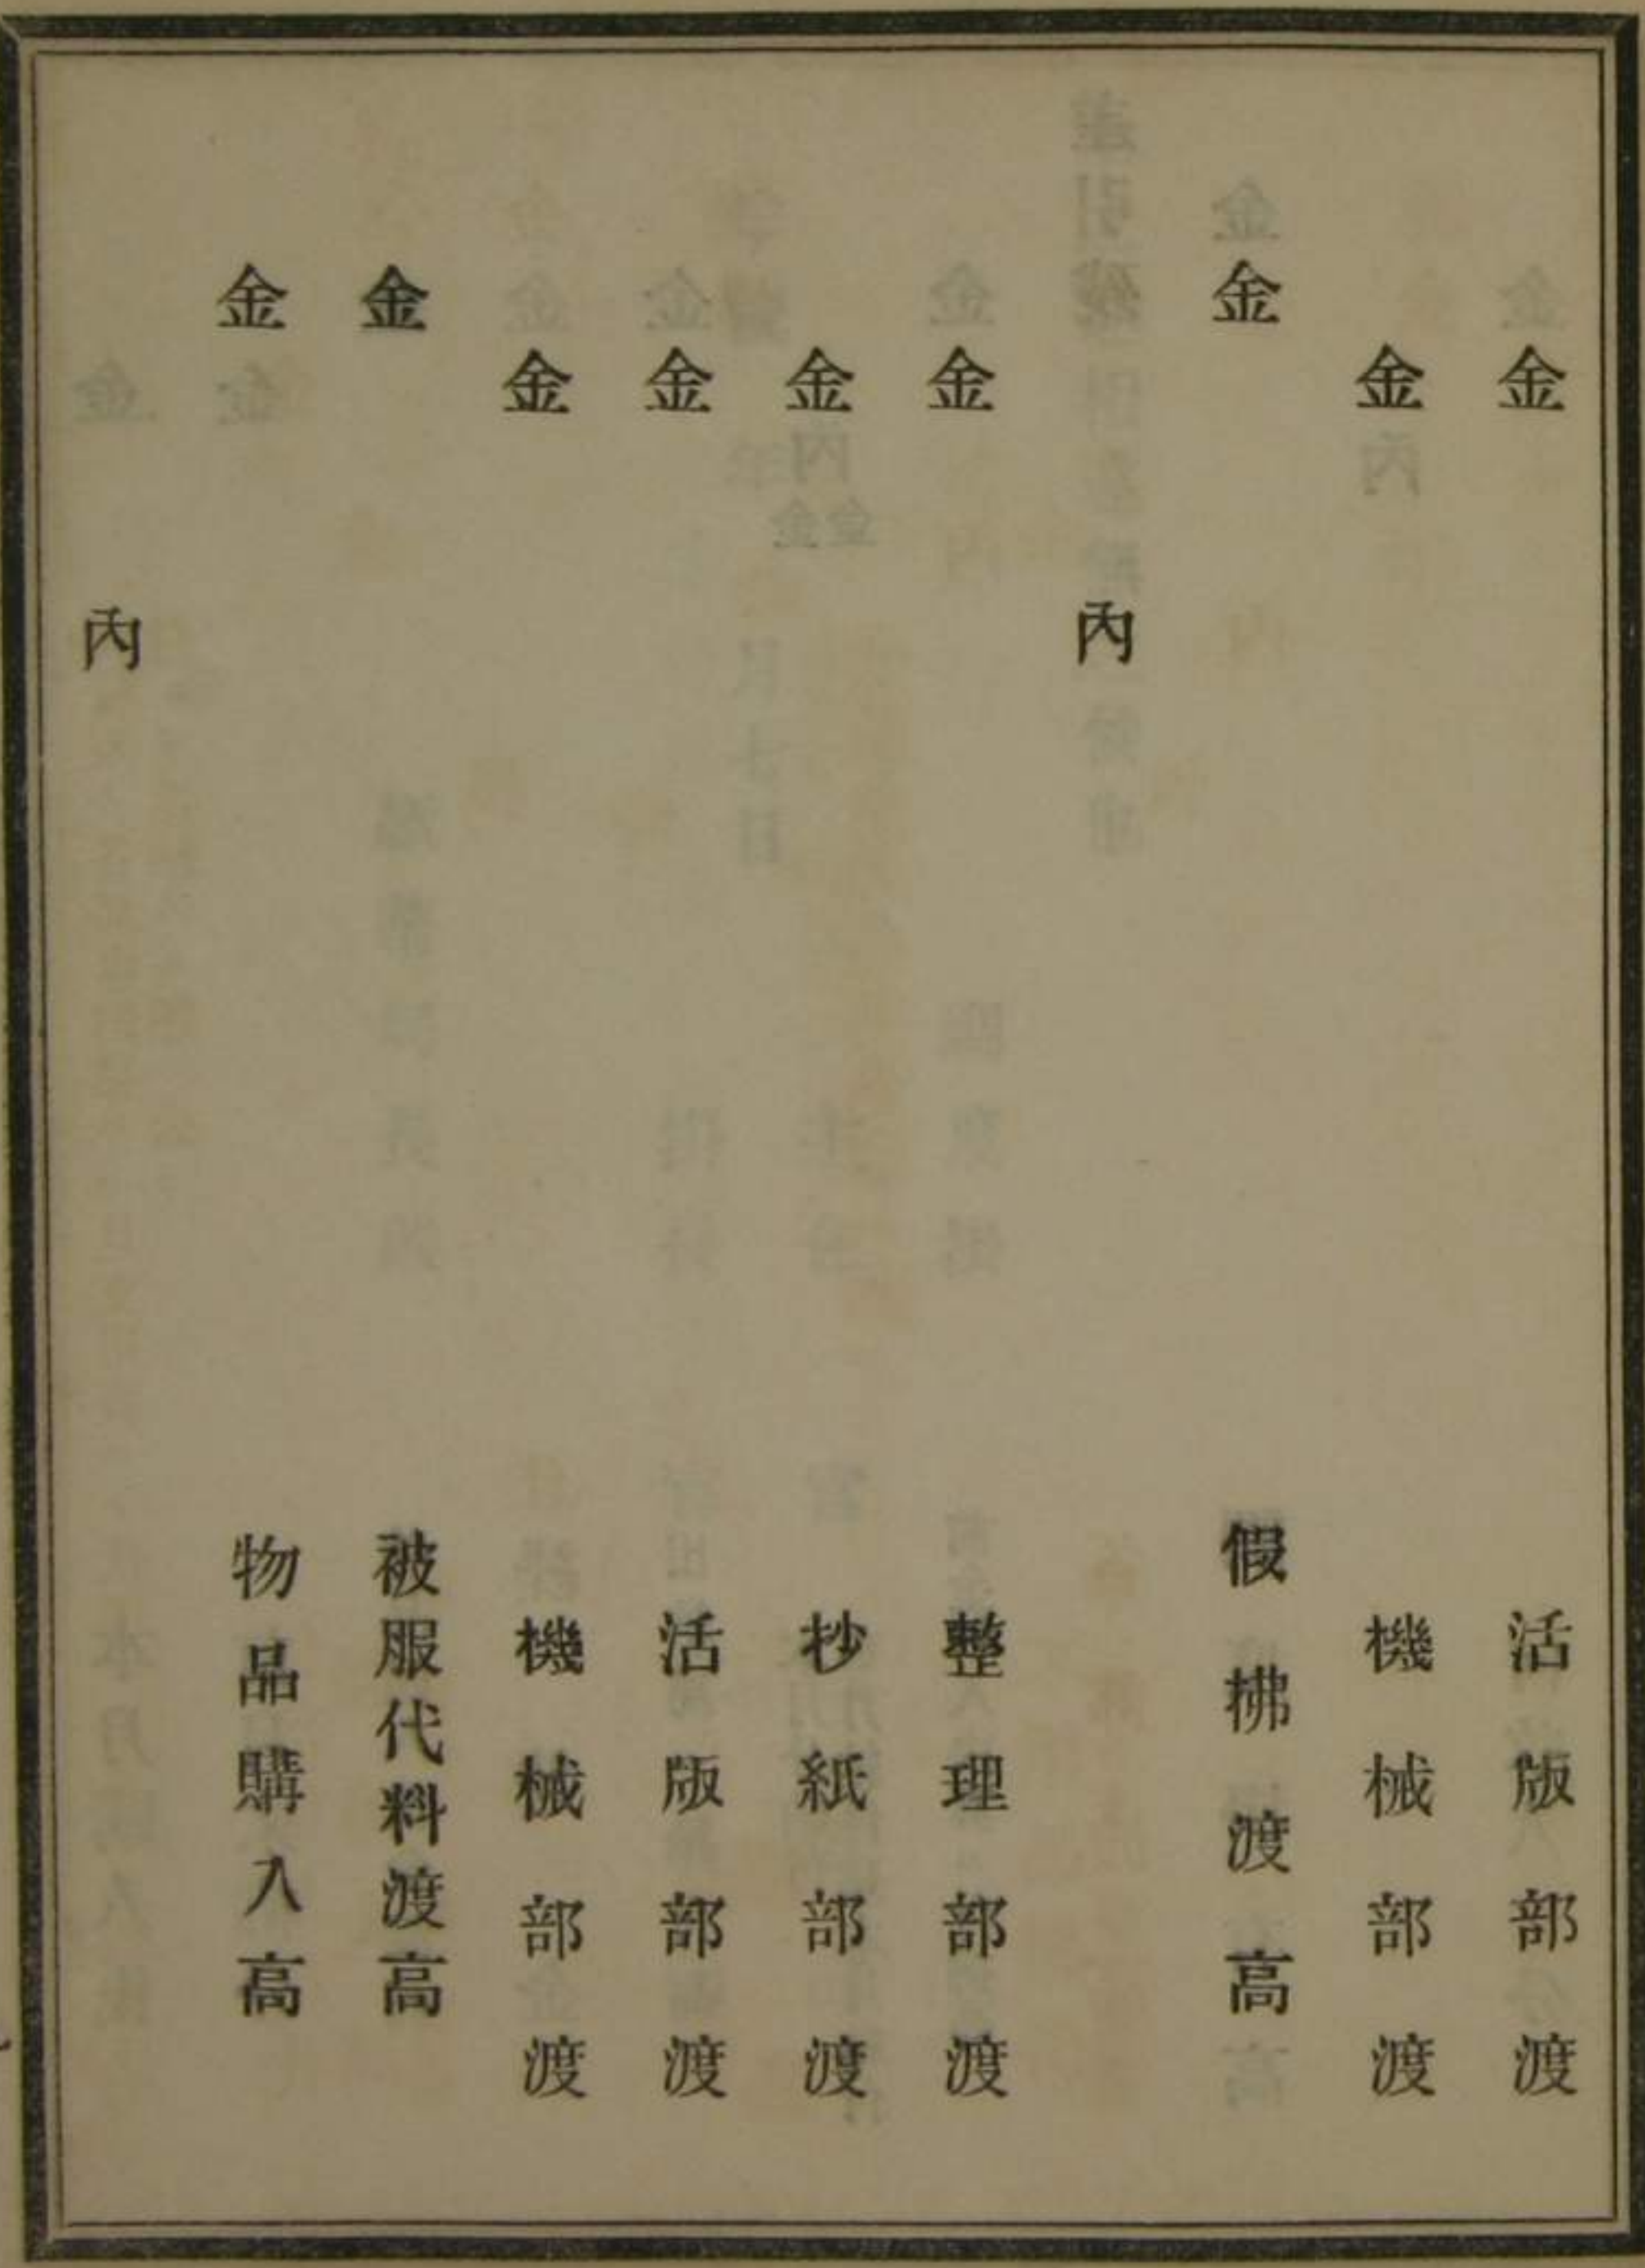 金 活版部渡
金 機械部渡
金 假拂渡高
內
金 整理部渡
金 抄紙部渡
金 活版部渡
金 機械部渡
金 被服代料渡高
金 物品購入高
內